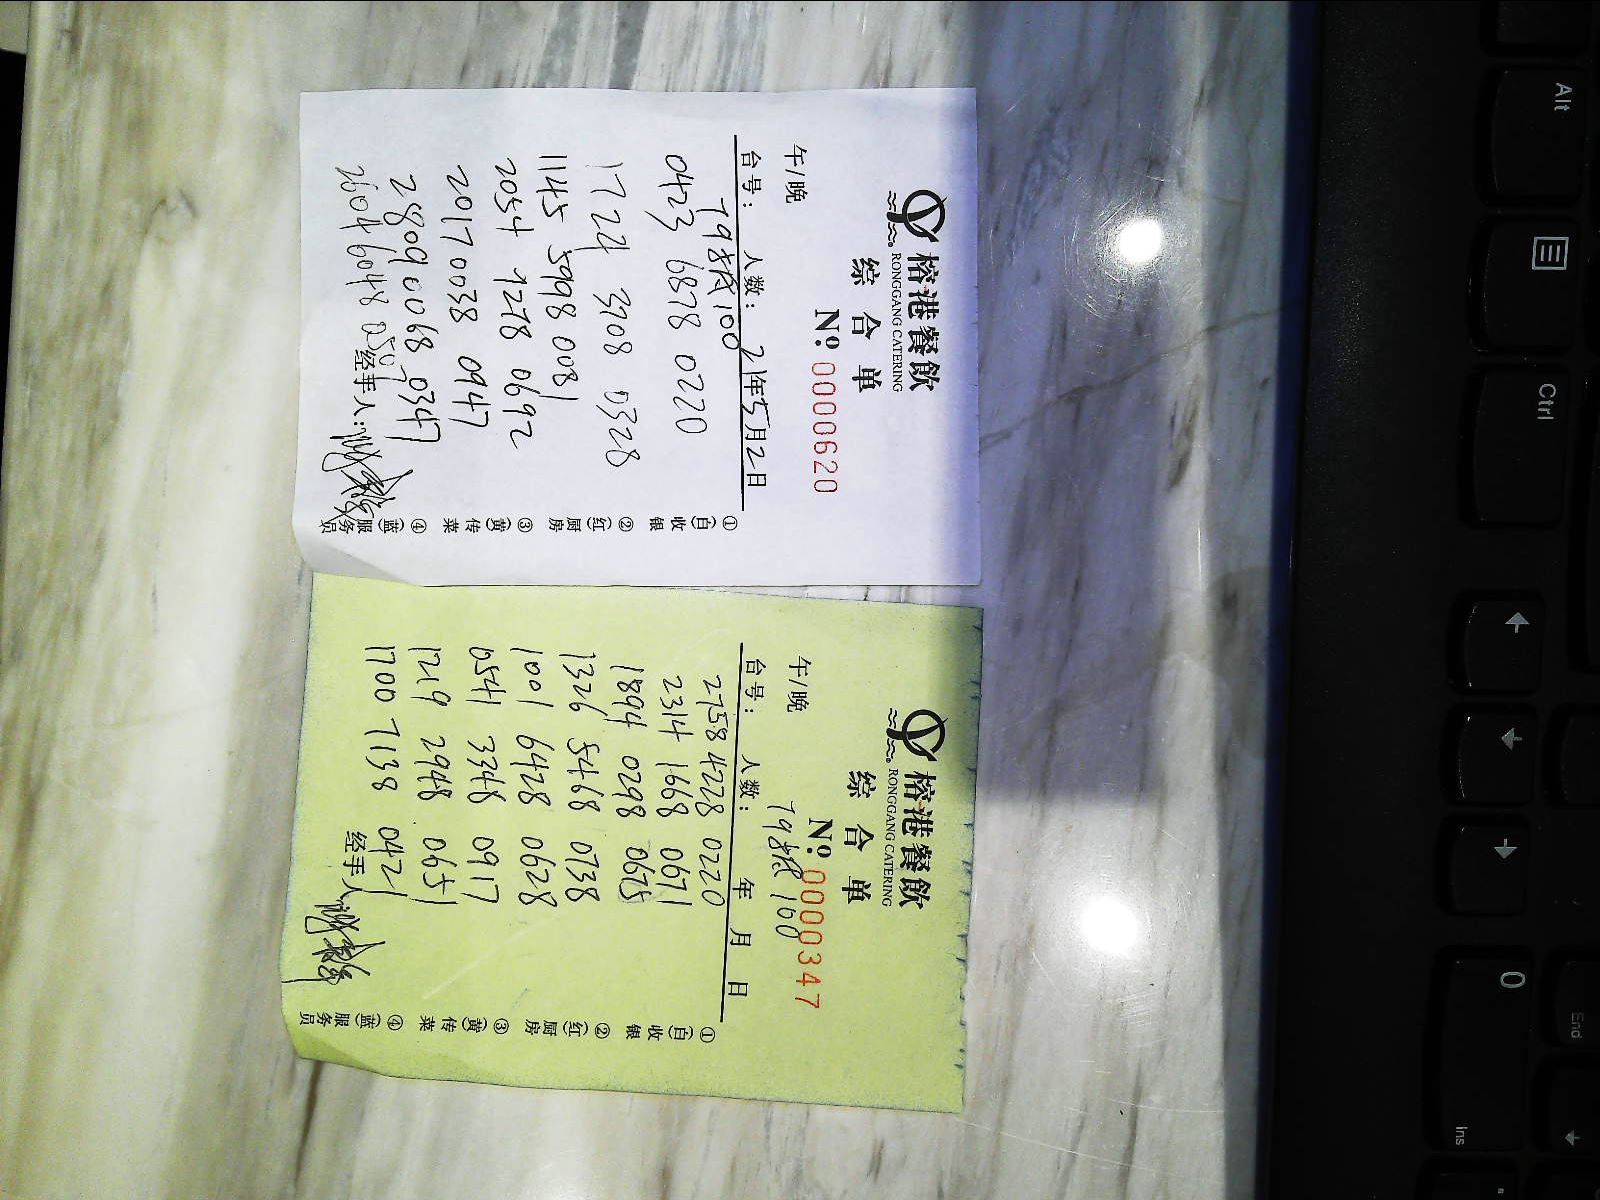 榕港餐飲
RONGGANG CATERING
综合单
午/晚
№ 0000620
台号: 人数: 21年5月2日
100
0423 6878 0220
1724 3108 0328
1145 5998 0081
2054 9278 0692
2017 0038 0947
2809 0068 0347
2604 6048
经手人:
①(白)收银 ②(红)厨房 ③(黄)传菜 ④(蓝)服务员
榕港餐飲
RONGGANG CATERING
综合单
午/晚
№ 0000347
100
台号: 人数: 年 月 日
2758 4228 0220
2314 1668 0671
1894 0298 0675
1326 5468 0738
1001 6428 0628
0541 3348 0917
1219 2948 0651
1700 7138 0421
经手人
①(白)收银 ②(红)厨房 ③(黄)传菜 ④(蓝)服务员
Alt
Ctrl
0
Ins
End